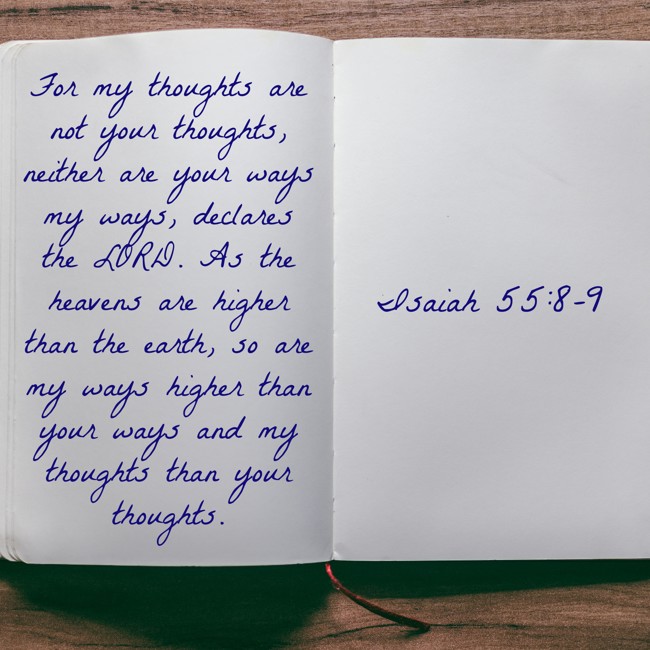 For my thoughts are
not your thoughts,
neither are your ways
my ways, declares
the LORD. As the
heavens are higher
than the earth, so are
my ways higher than
your ways and my
thoughts than your
thoughts.
Isaiah 55:8-9